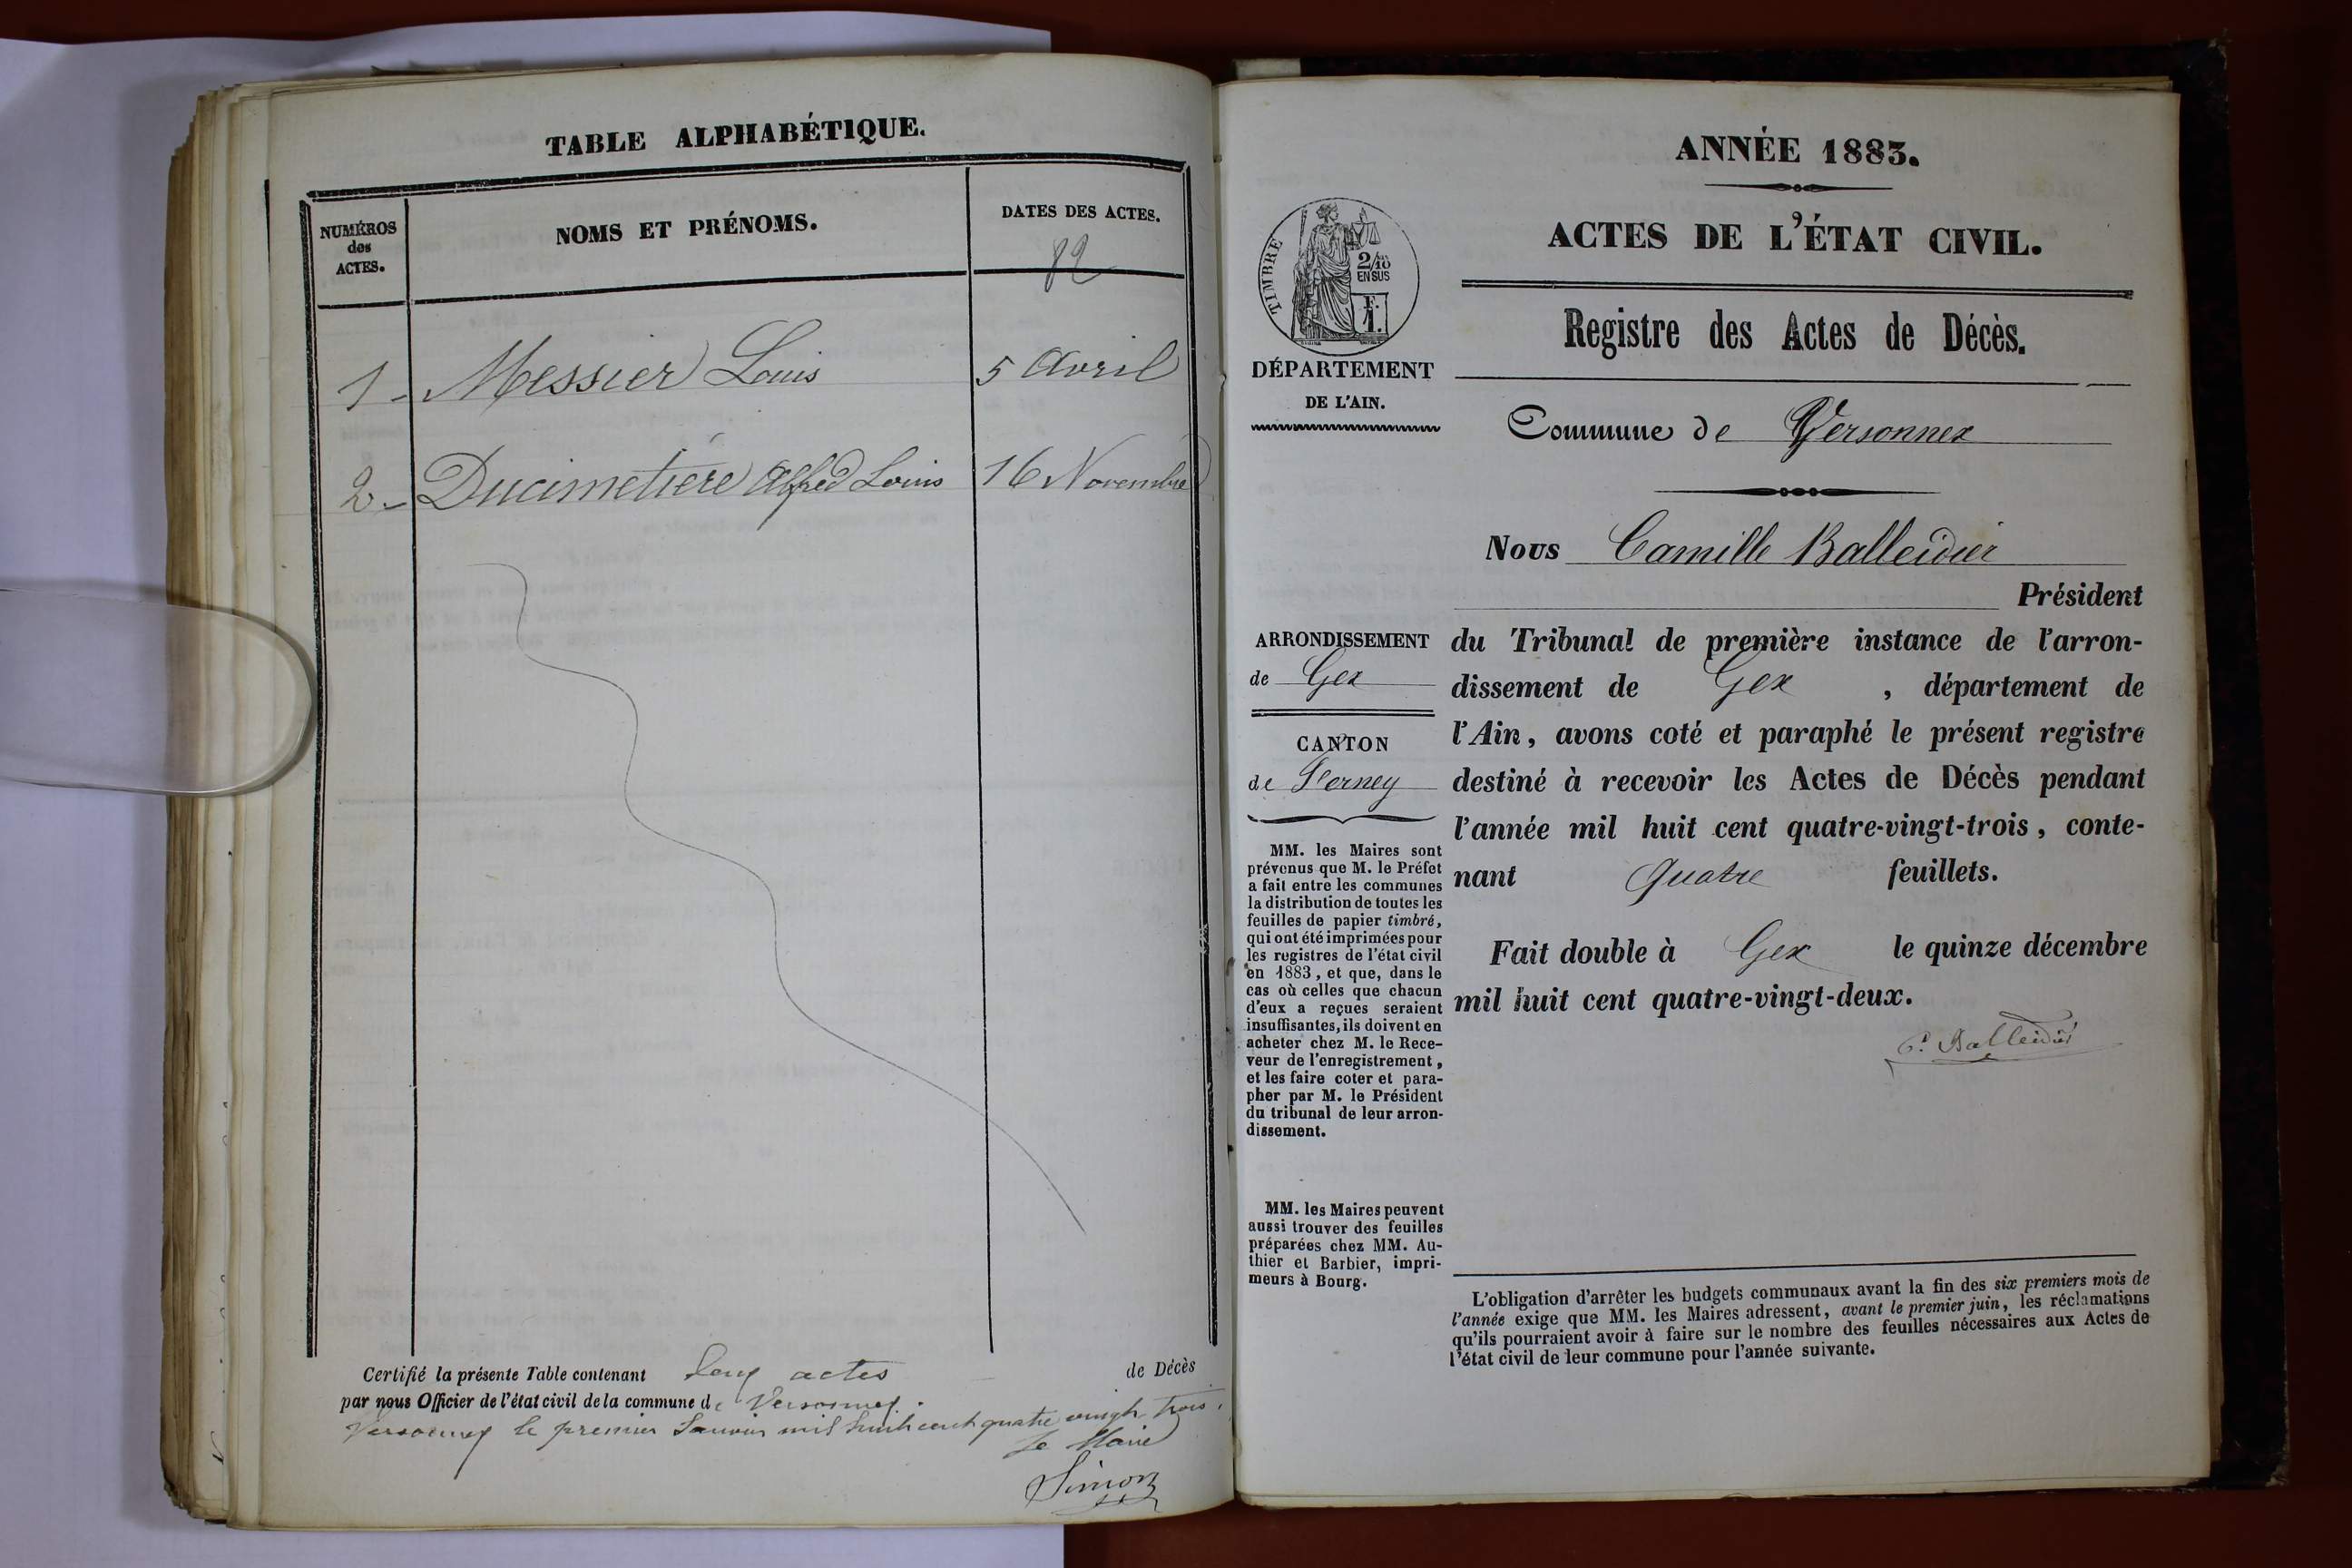 TABLE ALPHABÉTIQUE.
NUMÉROS
des
ACTES.
NOMS ET PRÉNOMS.
DATES DES ACTES.
82
1 - Messier Louis 5 Avril
2 - Ducimetière Alfred Louis 16 Novembre
Certifié la présente Table contenant deux actes de Décès
par nous Officier de l'état civil de la commune de Versonnex.
Versonnex le premier Janvier mil huit cent quatre vingt trois.
Le Maire
Simon
ANNÉE 1883.
ACTES DE L'ÉTAT CIVIL.
TIMBRE
2/10
EN SUS
F.
1.
Registre des Actes de Décès.
DÉPARTEMENT
DE L'AIN.
Commune de Versonnex
Nous Camille Balleidier
Président
ARRONDISSEMENT
de Gex
CANTON
de Ferney
du Tribunal de première instance de l'arron-
dissement de Gex , département de
l'Ain, avons coté et paraphé le présent registre
destiné à recevoir les Actes de Décès pendant
l'année mil huit cent quatre-vingt-trois, conte-
nant Quatre feuillets.
Fait double à Gex le quinze décembre
mil huit cent quatre-vingt-deux.
C. Balleidier
MM. les Maires sont
prévenus que M. le Préfet
a fait entre les communes
la distribution de toutes les
feuilles de papier timbré,
qui ont été imprimées pour
les registres de l'état civil
en 1883, et que, dans le
cas où celles que chacun
d'eux a reçues seraient
insuffisantes, ils doivent en
acheter chez M. le Rece-
veur de l'enregistrement,
et les faire coter et para-
pher par M. le Président
du tribunal de leur arron-
dissement.
MM. les Maires peuvent
aussi trouver des feuilles
préparées chez MM. Au-
thier et Barbier, impri-
meurs à Bourg.
L'obligation d'arrêter les budgets communaux avant la fin des six premiers mois de
l'année exige que MM. les Maires adressent, avant le premier juin, les réclamations
qu'ils pourraient avoir à faire sur le nombre des feuilles nécessaires aux Actes de
l'état civil de leur commune pour l'année suivante.